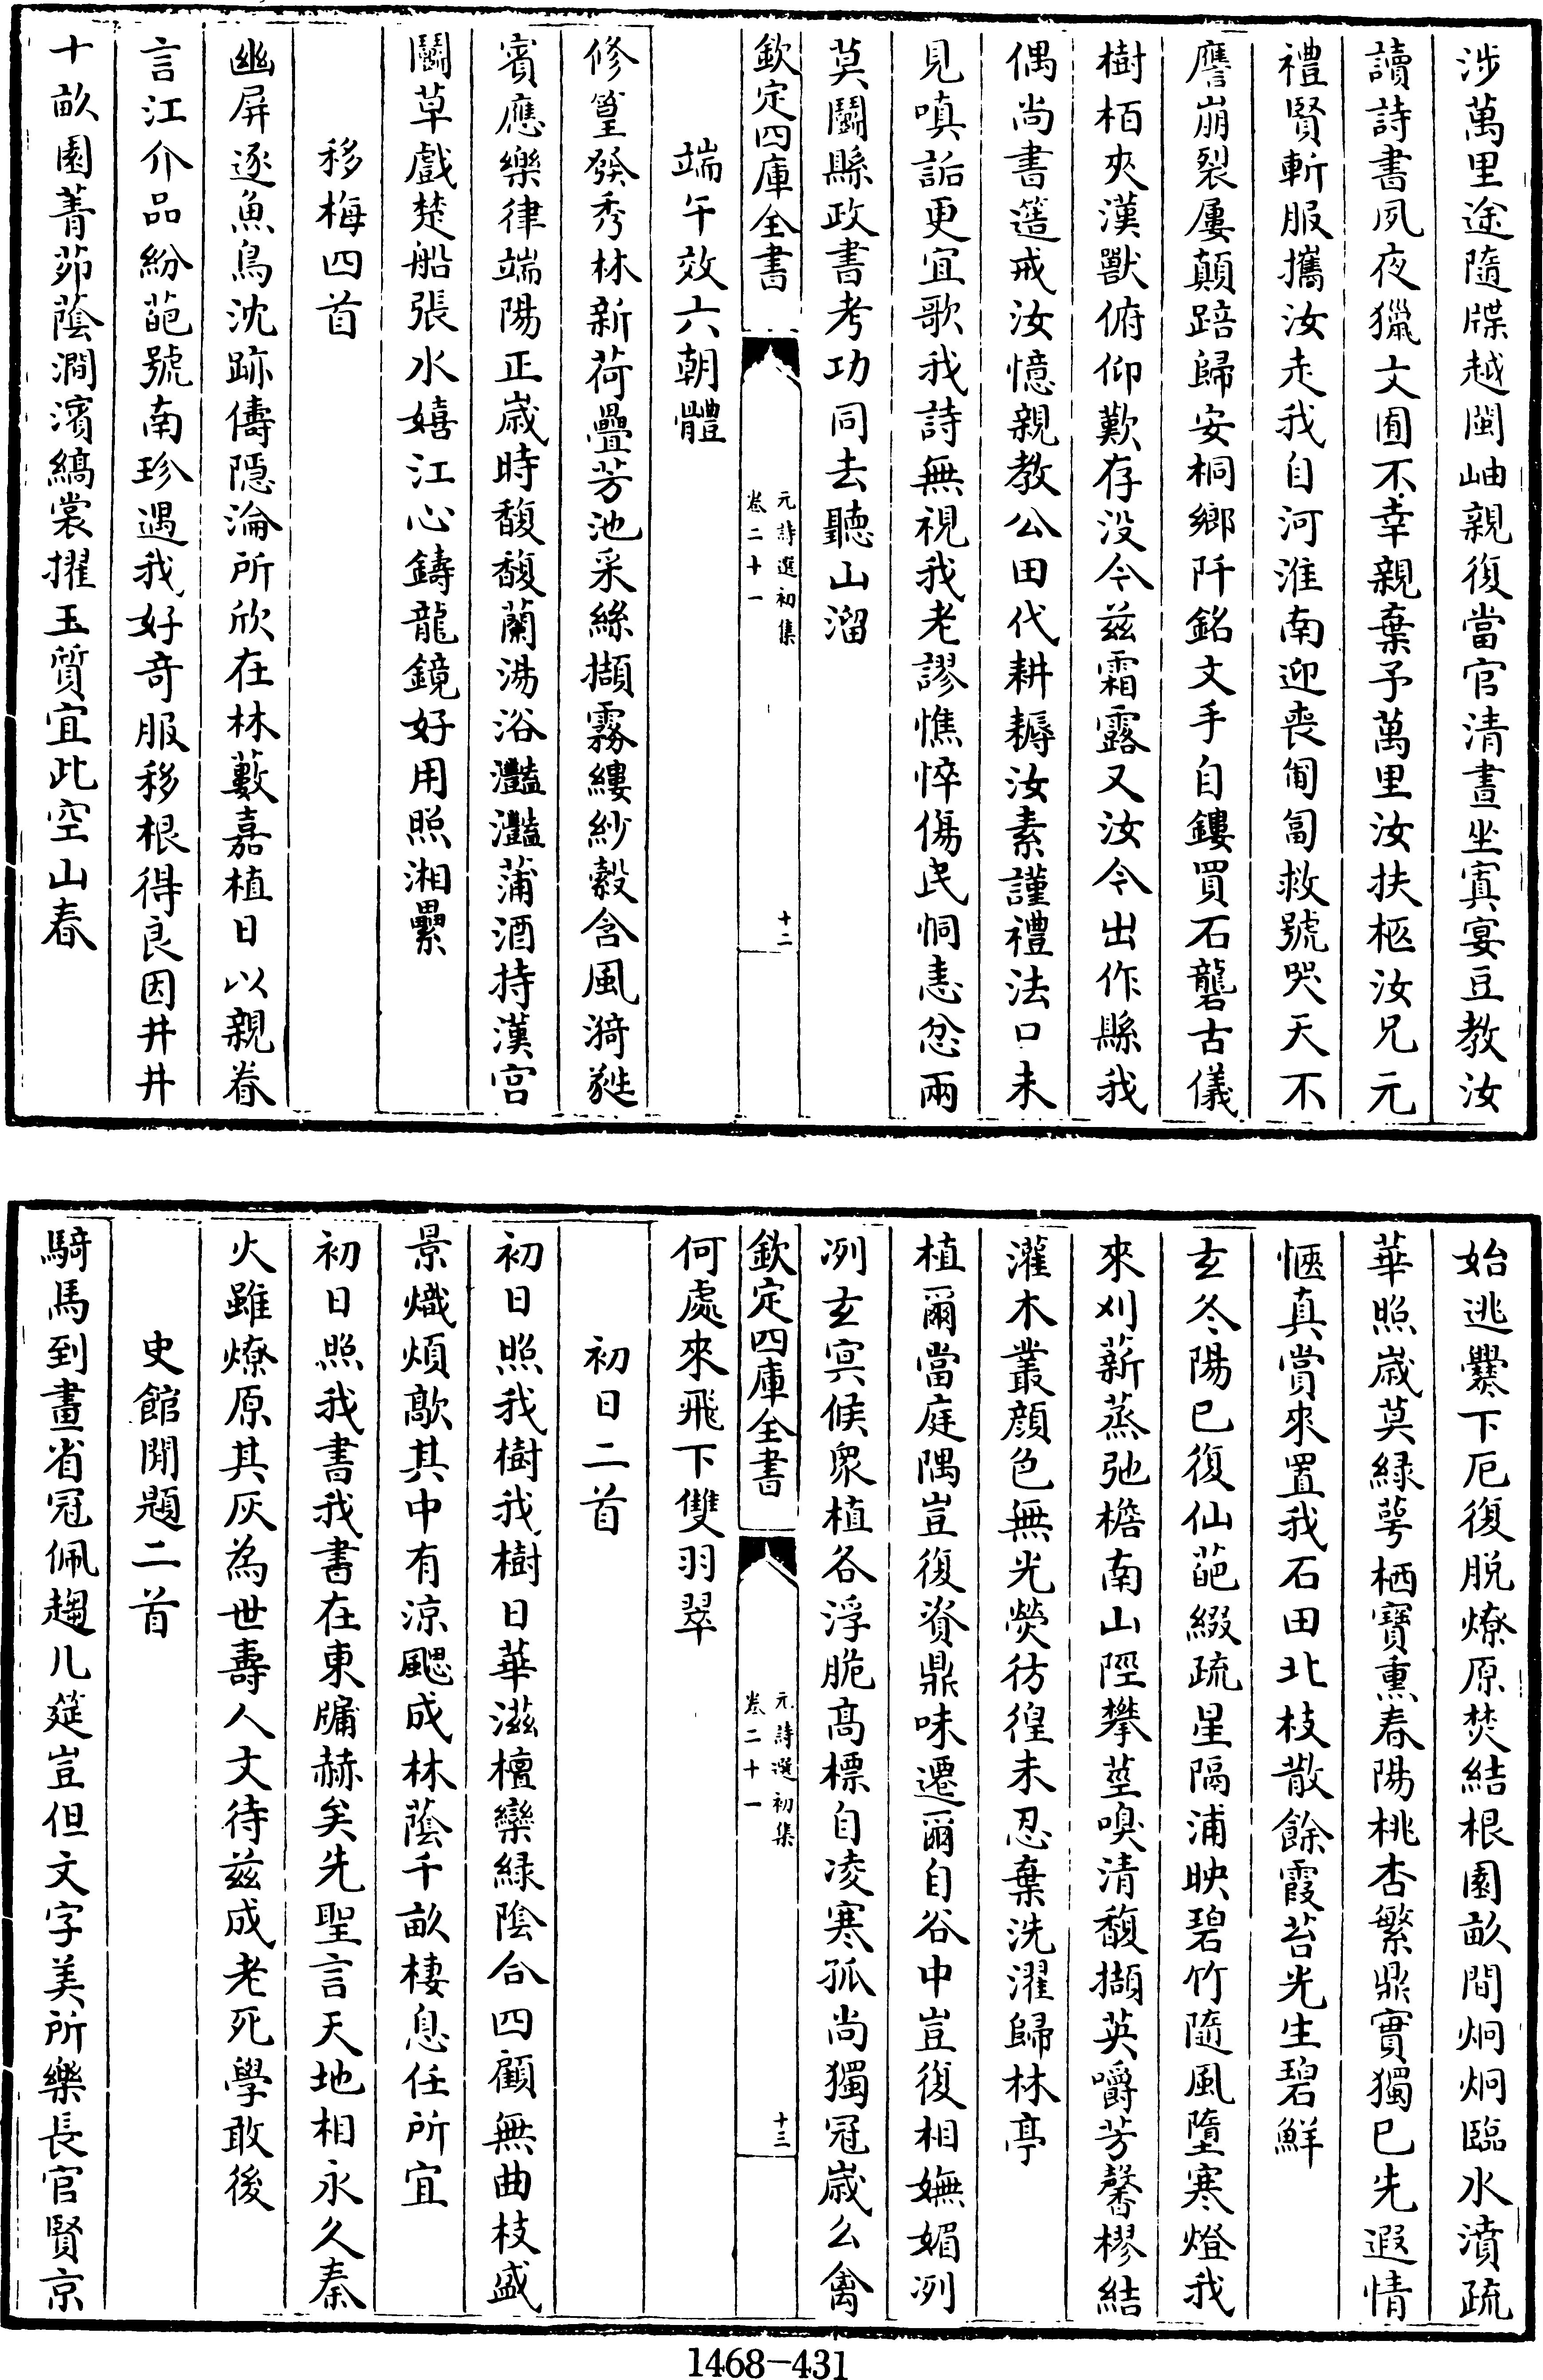 涉萬里途隨牒越閩岫親復當官清晝坐寘宴豆教汝
讀詩書夙夜獵文囿不幸親棄予萬里汝扶柩汝兄元
禮賢斬服攜汝走我自河淮南迎喪匍匐救號哭天不
譍崩裂屢顛踣歸安桐鄉阡銘文手自鏤買石礲古儀
樹栢夾漢獸俯仰歎存没今兹霜露又汝令出作縣我
偶尚書簉戒汝憶親教公田代耕耨汝素謹禮法口未
見嗔詬更宜歌我詩無視我老謬憔悴傷民恫恚忿兩
莫鬭縣政書考功同去聽山溜
欽定四庫全書
元詩選初集
卷二十一
十二
端午效六朝體
修篁發秀林新荷疊芳池采絲擷霧縷紗縠含風漪蕤
賓應樂律端陽正歲時馥馥蘭湯浴灩灩蒲酒持漢宮
鬭草戲楚船張水嬉江心鑄龍鏡好用照湘纍
移梅四首
幽屏逐魚鳥沈跡儔隱淪所欣在林藪嘉植日以親眷
言江介品紛葩號南珍遇我好奇服移根得良因井井
十畝園菁茆蔭澗濱縞裳擢玉質宜此空山春
始逃爨下厄復脱燎原焚結根園畝間炯炯臨水濆疏
華照歲莫緑萼栖寳熏春陽桃杏繁鼎實獨已先遐情
愜真賞來置我石田北枝散餘霞苔光生碧鮮
玄冬陽已復仙葩綴疏星隔浦映碧竹隨風墮寒燈我
來刈薪蒸弛檐南山陘攀莖嗅清馥擷英嚼芳馨樛結
灌木叢顔色無光熒彷徨未忍棄洗濯歸林亭
植爾當庭隅豈復資鼎味遷爾自谷中豈復相嫵媚冽
冽玄冥候衆植各浮脆高標自凌寒孤尚獨冠歲么禽
欽定四庫全書
元詩選初集
卷二十一
十三
何處來飛下雙羽翠
初日二首
初日照我樹我樹日華滋檀欒緑陰合四顧無曲枝盛
景熾煩歊其中有涼颸成林蔭千畝棲息任所宜
初日照我書我書在東牖赫矣先聖言天地相永久秦
火雖燎原其灰為世壽人文待兹成老死學敢後
史館閒題二首
騎馬到畫省冠佩趨几筵豈但文字美所樂長官賢京
1468-431